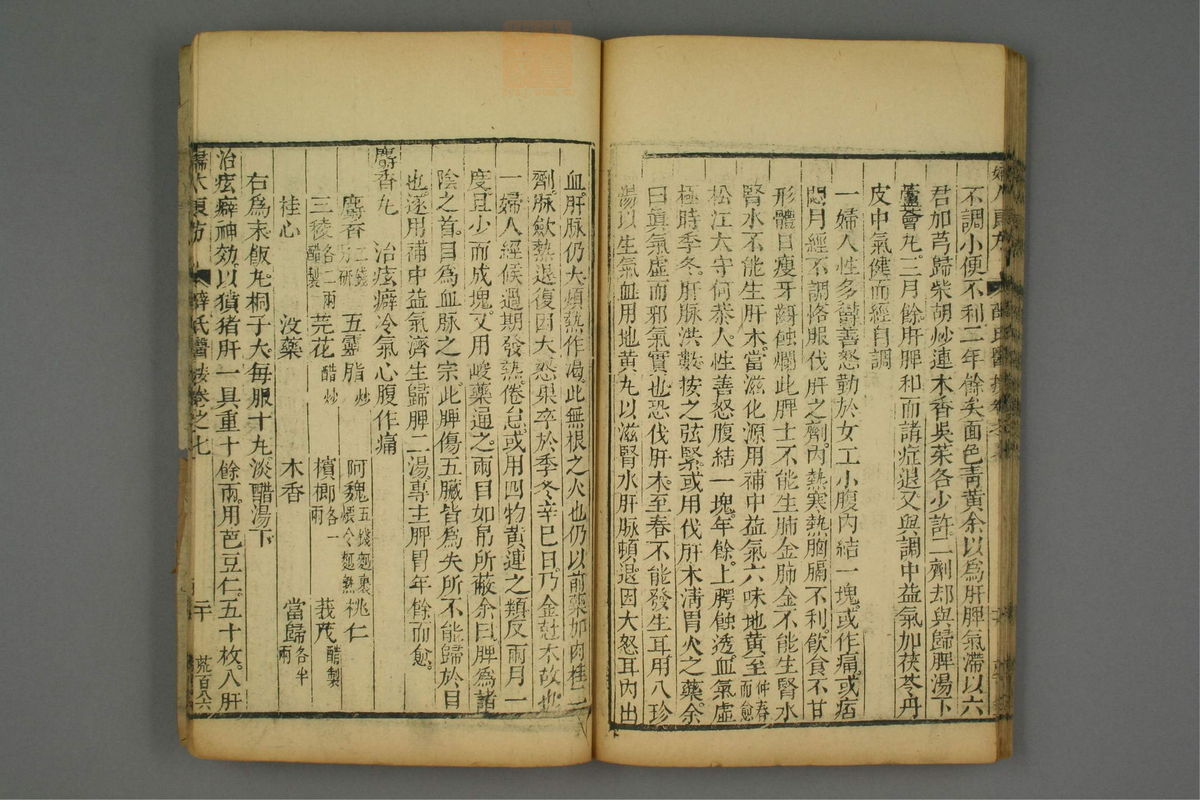 不調小便不利二年餘矣面色青黃余以爲肝脾氣滯以六
君加芎歸柴胡炒連木香吳茱各少許二劑却與歸脾湯下
蘆薈丸三月餘肝脾和而諸症退又與調中益氣加茯苓丹
皮中氣健而經自調
一婦人性多鬱善怒勤於女工小腹內結一塊或作痛或痞
悶月經不調恪服伐肝之劑內熱寒熱胸膈不利飲食不甘
形體日瘦牙齦蝕爛此脾土不能生肺金肺金不能生腎水
腎水不能生肝木當滋化源用補中益氣六味地黃至仲春而愈
松江太守何恭人性善怒腹結一塊年餘上腭蝕透血氣虛
極時季冬肝脈洪數按之弦緊或用伐肝木清胃火之藥余
曰眞氣虛而邪氣實也恐伐肝木至春不能發生耳用八珍
湯以生氣血用地黃丸以滋腎水肝脈頓退因大怒耳內出
血肝脈仍大煩熱作渴此無根之火也仍以前藥加肉桂二
劑脈斂熱退復因大怒果卒於季冬辛巳日乃金尅木故也
一婦人經候過期發熱倦怠或用四物黃連之類反兩月一
度且少而成塊又用峻藥通之兩目如帛所蔽余曰脾爲諸
陰之首目爲血脈之宗此脾傷五臟皆爲失所不能歸於目
也遂用補中益氣濟生歸脾二湯專主脾胃年餘而愈
麝香丸 治痃癖冷氣心腹作痛
麝香二錢另研 五靈脂炒 阿魏五錢麵裹煨令麵熟 桃仁
三稜各二兩醋製 芫花醋炒 檳榔各一兩 莪茂醋製
桂心 没藥 木香 當歸各半兩
右爲末飯丸桐子大每服十丸淡醋湯下
治痃癖神効以獖猪肝一具重十餘兩用芭豆仁五十枚入肝
婦人良方 薛氏醫按卷之七 二十 荒百八六